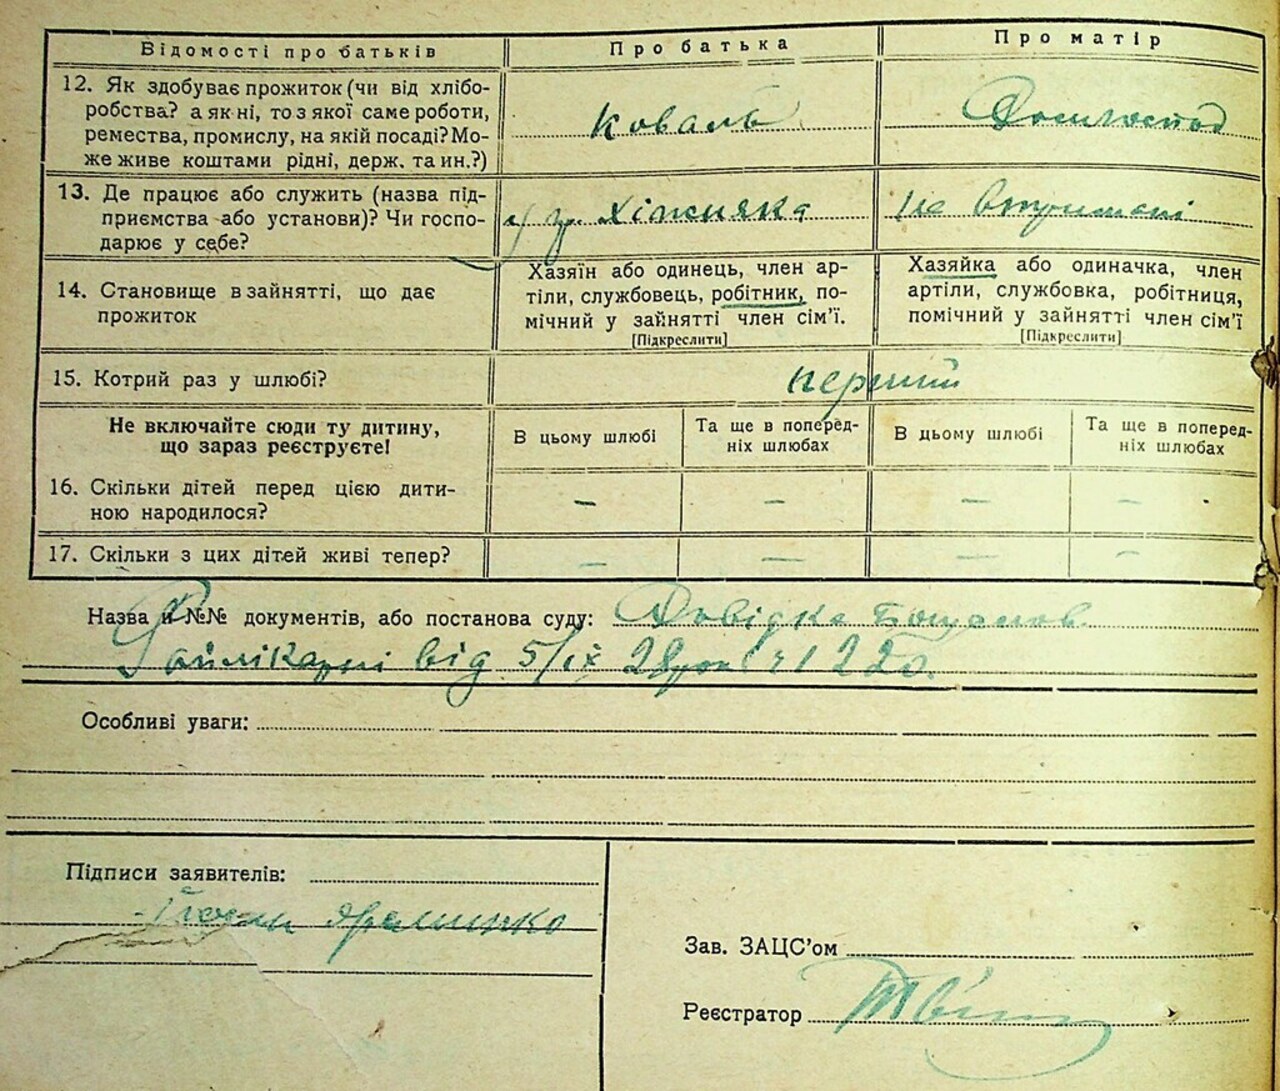 Відомості про батьків
Про батька
Про матір
12. Як здобуває прожиток (чи від хлібо-
робства? а як ні, то з якої саме роботи,
ремества, промислу, на якій посаді? Мо-
же живе коштами рідні, держ. та ин.?)
Коваль
Домогоспод
13. Де працює або служить (назва під-
приємства або установи)? Чи госпо-
дарює у себе?
у гр. Хіжняка
на втриманні
14. Становище в зайнятті, що дає
прожиток
Хазяїн або одинець, член ар-
тіли, службовець, робітник, по-
мічний у зайнятті член сім'ї.
[Підкреслити]
Хазяйка або одиначка, член
артіли, службовка, робітниця,
помічний у зайнятті член сім'ї
[Підкреслити]
15. Котрий раз у шлюбі?
перший
Не включайте сюди ту дитину,
що зараз реєструєте!
В цьому шлюбі
Та ще в поперед-
ніх шлюбах
В цьому шлюбі
Та ще в поперед-
ніх шлюбах
16. Скільки дітей перед цією дити-
ною народилося?
– – – –
17. Скільки з цих дітей живі тепер?
– – – –
Назва й №№ документів, або постанова суду: Довідка
Райлікарні від 5/ІХ 28 року
Особливі уваги:
Підписи заявителів:
Яременко
Зав. ЗАЦС'ом
Реєстратор